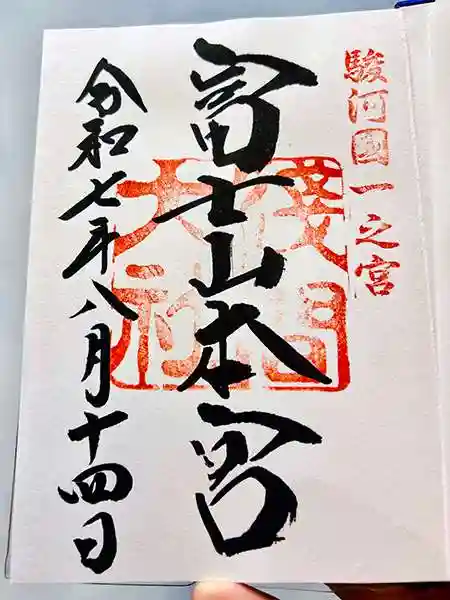 駿河國一之宮
富士山本宮
淺間大社
令和七年八月十四日